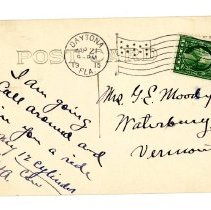 POST
DAYTONA
APR 21
5-PM
1915
FLA.
I am going
call around and
give you a ride
my 12 cylinder
Mrs G. E. Moody
Waterbury
Vermont